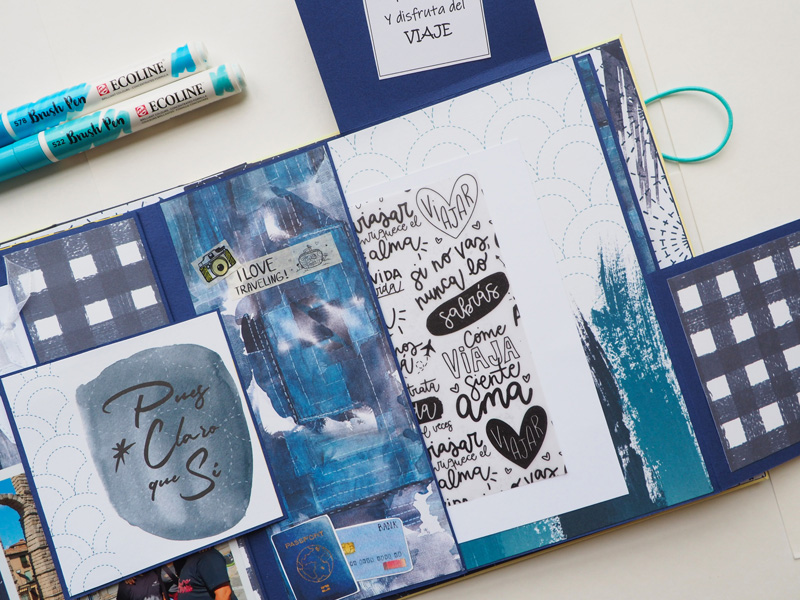 Y disfruta del
VIAJE
578 Brush Pen ECOLINE
522 Brush Pen ECOLINE
I LOVE
TRAVELING!
Pues
Claro
que Sí
PASSPORT
BANK
viajar
enriquece el
alma
VIAJAR
si no vas,
nunca lo
sabrás
VIDA
Cóme
VIAJA
siente
ama
VIAJAR
viajar
enriquece el
alma
no vas,